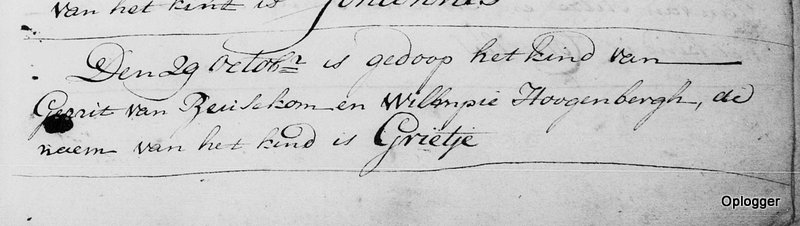 van het kint is Johannes
Den 29 Octobr is gedoop het kind van
Gerrit van Reusekom en Willmpie Hoogenbergh, de
naem van het kind is Grietje
Oplogger